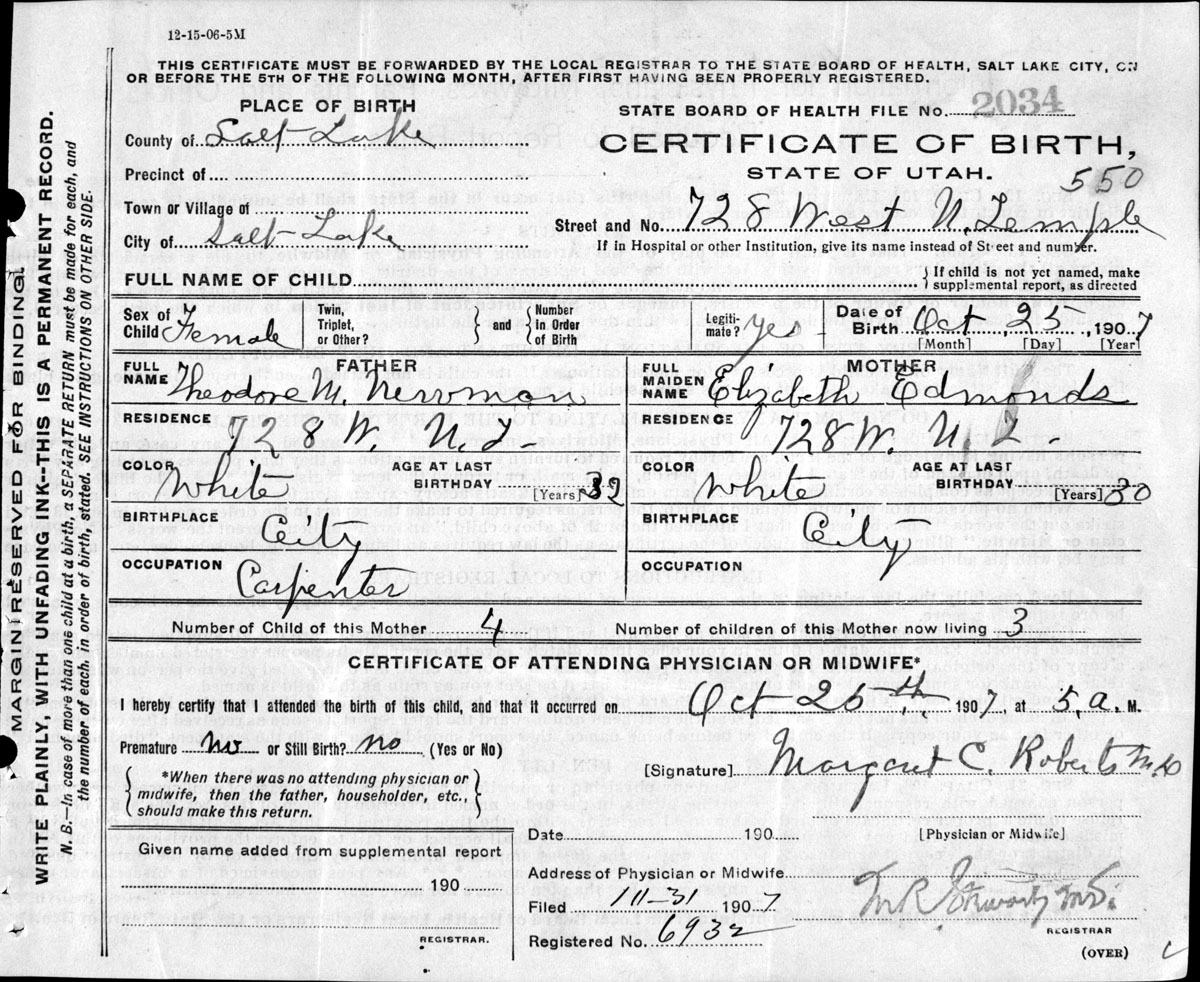 12-15-06-5M
THIS CERTIFICATE MUST BE FORWARDED BY THE LOCAL REGISTRAR TO THE STATE BOARD OF HEALTH, SALT LAKE CITY, ON
OR BEFORE THE 5TH OF THE FOLLOWING MONTH, AFTER FIRST HAVING BEEN PROPERLY REGISTERED.
PLACE OF BIRTH
County of Salt Lake
Precinct of
Town or Village of
City of Salt Lake
STATE BOARD OF HEALTH FILE No. 2034
CERTIFICATE OF BIRTH,
STATE OF UTAH. 550
Street and No. 728 West N. Temple
If in Hospital or other Institution, give its name instead of Street and number.
FULL NAME OF CHILD
If child is not yet named, make
supplemental report, as directed
Sex of Child Female
Twin, Triplet, or Other?
and Number in Order of Birth
Legiti-mate? yes
Date of Birth Oct 25 1907
[Month] [Day] [Year]
FATHER
FULL NAME Theodore M. Newman
RESIDENCE 728 W. N. T.
COLOR White AGE AT LAST BIRTHDAY 32 [Years]
BIRTHPLACE City
OCCUPATION Carpenter
MOTHER
FULL MAIDEN NAME Elizabeth Edmonds
RESIDENCE 728 W. N. T.
COLOR White AGE AT LAST BIRTHDAY 30 [Years]
BIRTHPLACE City
OCCUPATION
Number of Child of this Mother 4 Number of children of this Mother now living 3
CERTIFICATE OF ATTENDING PHYSICIAN OR MIDWIFE*
I hereby certify that I attended the birth of this child, and that it occurred on Oct 25th, 1907, at 5, a. M.
Premature no or Still Birth? no (Yes or No)
*When there was no attending physician or
midwife, then the father, householder, etc.,
should make this return.
[Signature] Margaret C. Roberts M.D
Date 190
[Physician or Midwife]
Given name added from supplemental report
190
REGISTRAR.
Address of Physician or Midwife
Filed 1907
Registered No. 6932
REGISTRAR
(OVER)
MARGIN RESERVED FOR BINDING.
WRITE PLAINLY, WITH UNFADING INK—THIS IS A PERMANENT RECORD.
N. B.—In case of more than one child at a birth, a SEPARATE RETURN must be made for each, and
the number of each, in order of birth, stated. SEE INSTRUCTIONS ON OTHER SIDE.